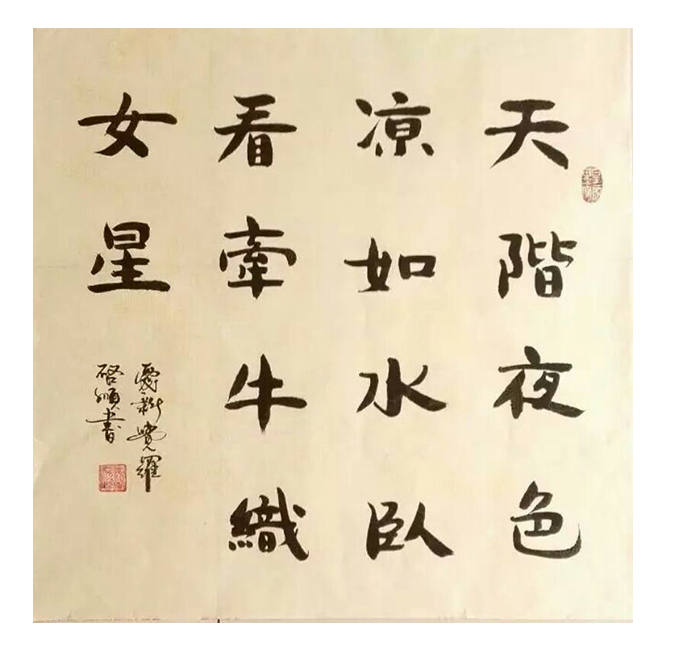 天階夜色
涼如水臥
看牽牛織
女星
愛新覺羅
啓順書